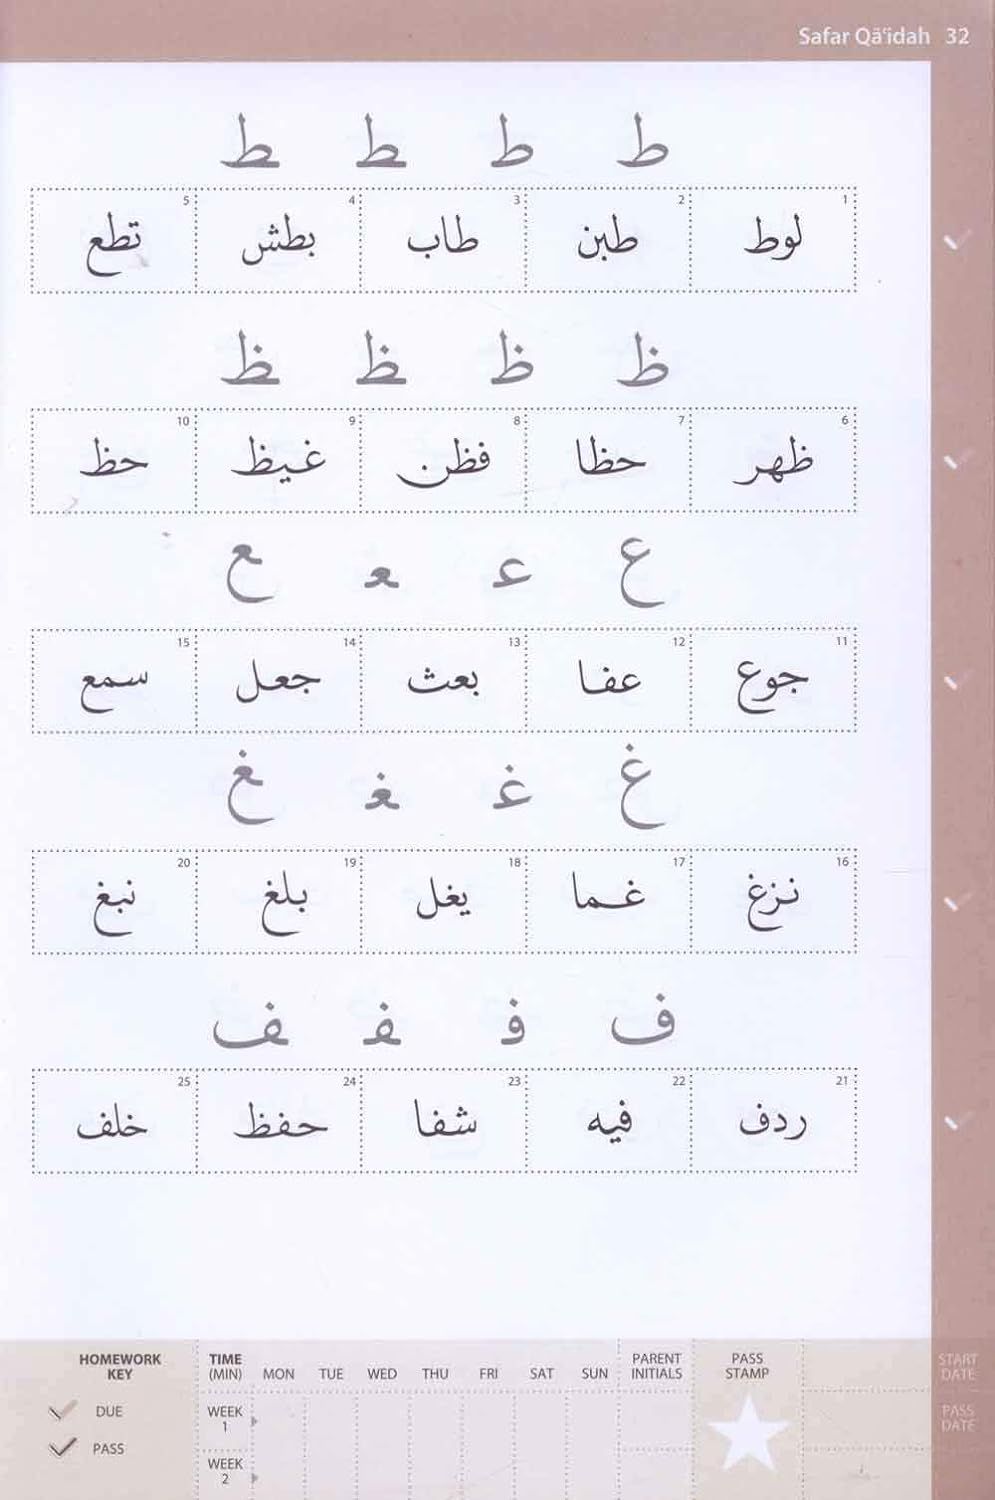 Safar Qāʿidah 32
ط ط ط ط
1 2 3 4 5
لوط طبن طاب بطش تطع
ظ ظ ظ ظ
6 7 8 9 10
ظهر حظا فظن غيظ حظ
ع عـ ـعـ ـع
11 12 13 14 15
جوع عفا بعث جعل سمع
غ غـ ـغـ ـغ
16 17 18 19 20
نزغ غما يغل بلغ نبغ
ف فـ ـفـ ـف
21 22 23 24 25
ردف فيه شفا حفظ خلف
HOMEWORK KEY
DUE
PASS
TIME (MIN) MON TUE WED THU FRI SAT SUN PARENT INITIALS PASS STAMP START DATE
WEEK 1 PASS DATE
WEEK 2